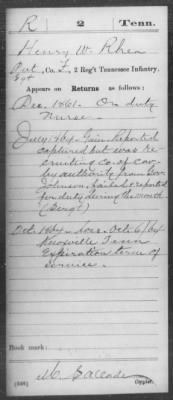 R 2 Tenn.
Henry W. Rhea
Pvt., Co. F, 2 Reg't Tennessee Infantry.
Sgt
Appears on Returns as follows:
Dec. 1861. On duty
Nurse.
July/64 Gain Reported
captured but was re-
cruiting co. of cav.
by authority from Gov.
Johnson, failed to report
for duty during the month
(Sergt)
Oct. 1864. Loss. Oct. 6/64
Knoxville Tenn
Expiration term of
service.
Book mark:
(546) Copyist.